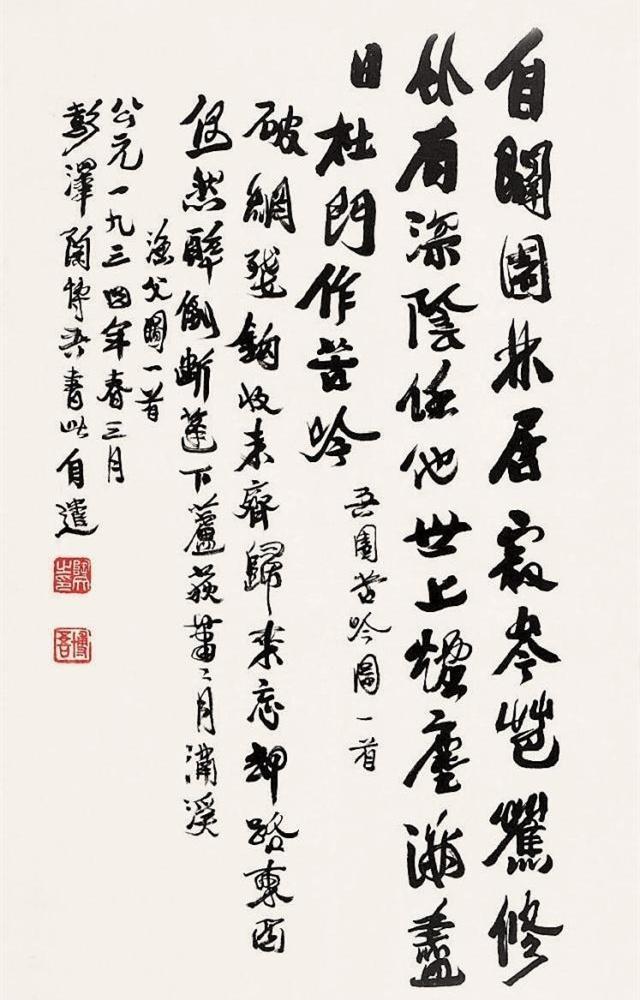 自闢園林居岑修
竹有深陰任他世上煙塵滿盡
日杜門作苦吟
吾園苦吟圖一首
破網殘鈎收未齊歸來忘却路東西
然醉倒斷蓬下蘆荻蕭〻月滿溪
漁父圖一首
公元一九三四年春三月
彭澤陶博吾書此自遣
博吾